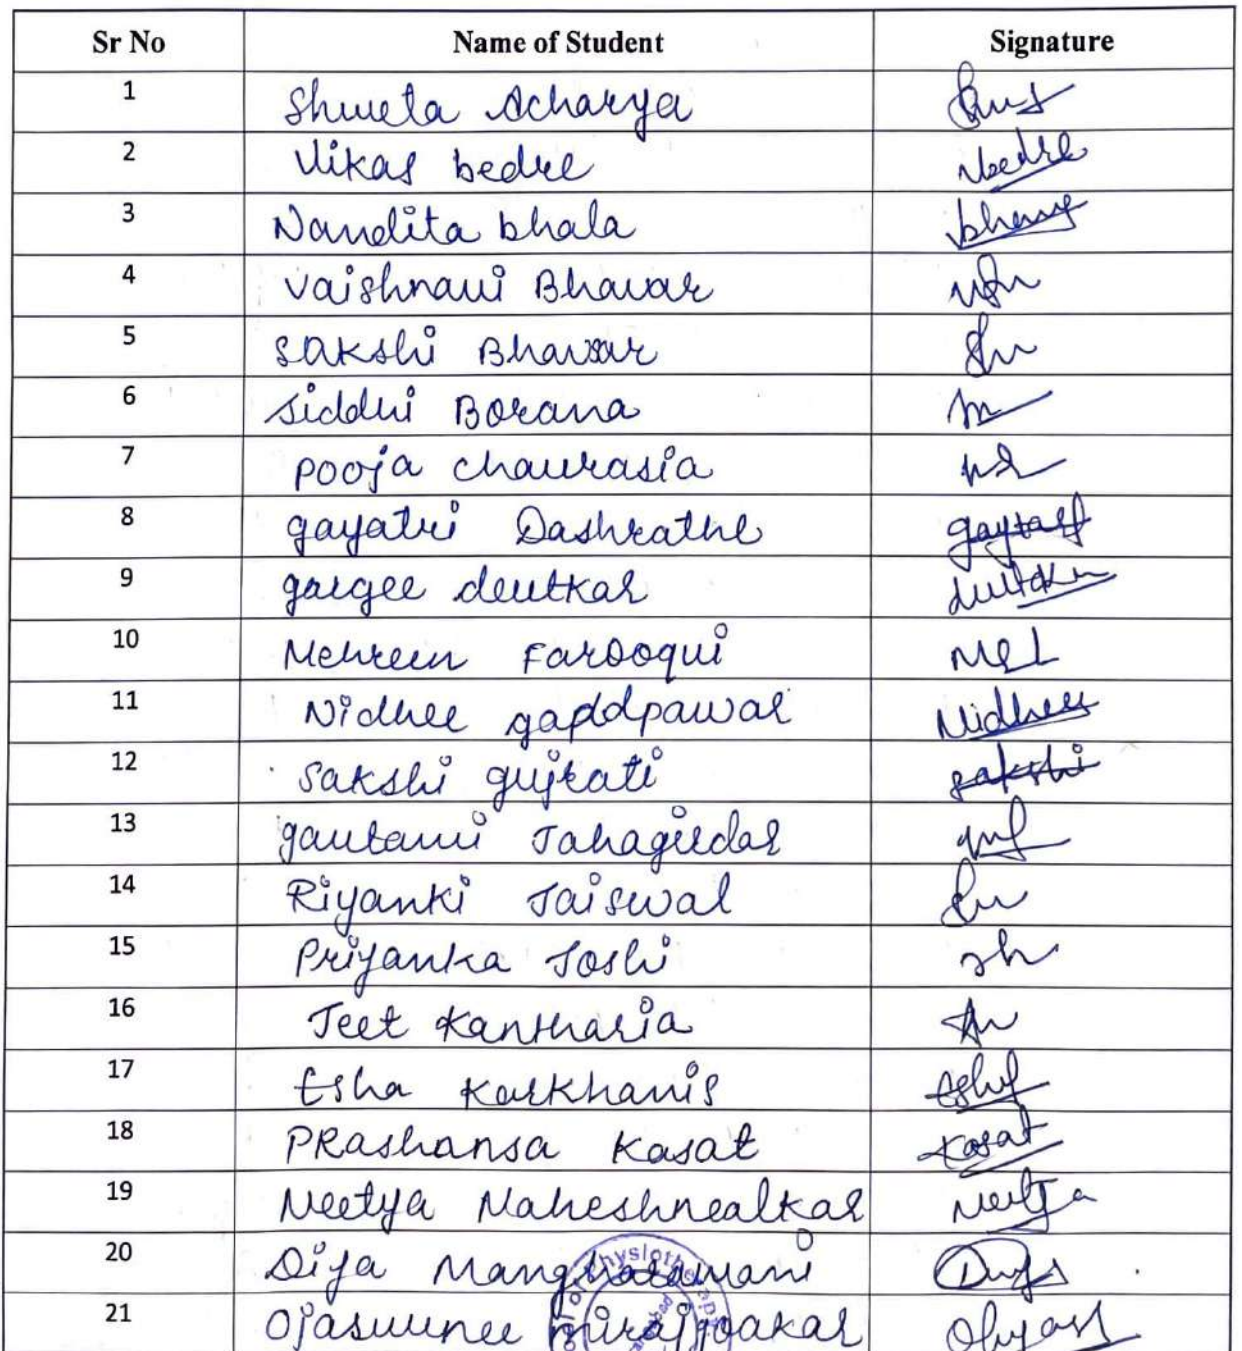 Sr No Name of Student Signature
1 Shweta Acharya
2 Vikas bedre bedre
3 Nandita bhala
4 Vaishnavi Bhavar
5 Sakshi Bhavsar
6 Siddhi Borana
7 Pooja Chaurasia
8 gayatri Dashrathe
9 gargee deutkar
10 Mehreen Farooqui
11 Nidhee gaddpawar Nidhee
12 Sakshi gujrati sakshi
13 gautami Jahagirdar
14 Riyanki Jaiswal
15 Priyanka Joshi
16 Jeet Kantharia
17 Esha Karkhanis
18 PRashansa Kasat Kasat
19 Neetya Maheshnealkar Neetya
20 Dija Mangharamani
21 Ojaswinee mirajgoakar